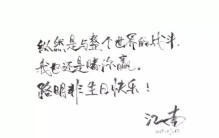 纵然是与整个世界的战斗
我也还是赌你赢。
路明非生日快乐！
江南